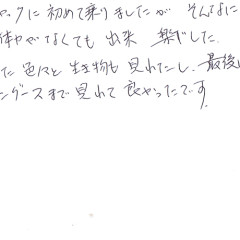 ヤックに初めて乗りましたが そんなに
体力がなくても 出来 楽しした
た 色々と生き物も見れたし、最後
ングースまで見れて良かったです。